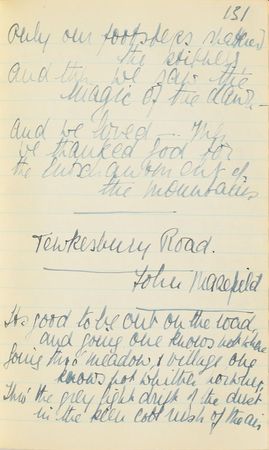 131
Only our footsteps shattered
the stillness
And then we saw the
Magic of the dawn -
And we loved - Then
we thanked God for
the enchantment of
the mountains
Tewkesbury Road.
John Masefield
It is good to be out on the road,
and going one knows not where
Going thro' meadow & village one
knows not whither nor why,
Thro' the grey light drift of the dust
in the keen cool rush of the air